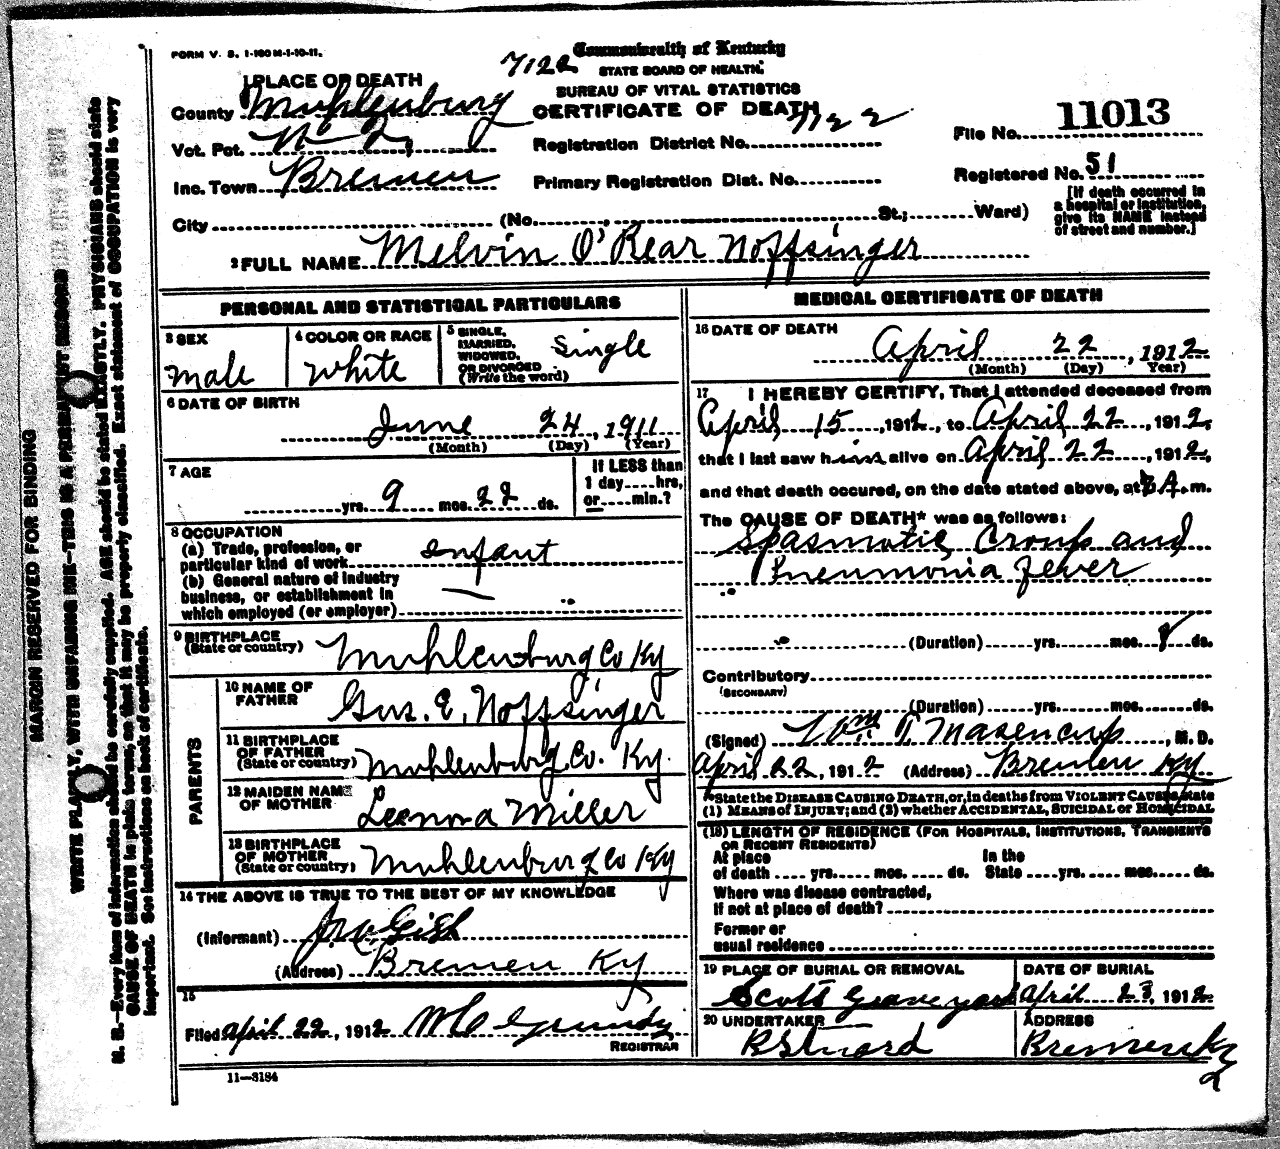 FORM V. S. 1-100 M-1-10-11.
7122
Commonwealth of Kentucky
STATE BOARD OF HEALTH.
BUREAU OF VITAL STATISTICS
CERTIFICATE OF DEATH
1 PLACE OF DEATH
County Muhlenburg
Vot. Pct. No 2,
Registration District No. 7122
File No. 11013
Inc. Town Bremen
Primary Registration Dist. No.
Registered No. 51
City (No. , St.; Ward)
[If death occurred in
a hospital or institution,
give its NAME instead
of street and number.]
2 FULL NAME Melvin O'Rear Noffsinger
PERSONAL AND STATISTICAL PARTICULARS
3 SEX
male
4 COLOR OR RACE
White
5 SINGLE,
MARRIED,
WIDOWED,
OR DIVORCED
(Write the word)
Single
6 DATE OF BIRTH
June 24, 1911
(Month) (Day) (Year)
7 AGE
yrs. 9 mos. 22 ds.
If LESS than
1 day....hrs,
or.....min.?
8 OCCUPATION
(a) Trade, profession, or
particular kind of work infant
(b) General nature of industry
business, or establishment in
which employed (or employer)
9 BIRTHPLACE
(State or country) Muhlenburg Co Ky
PARENTS
10 NAME OF
FATHER Gus. E. Noffsinger
11 BIRTHPLACE
OF FATHER
(State or country) Muhlenburg Co. Ky.
12 MAIDEN NAME
OF MOTHER Leenora Miller
13 BIRTHPLACE
OF MOTHER
(State or country) Muhlenburg Co Ky
14 THE ABOVE IS TRUE TO THE BEST OF MY KNOWLEDGE
(Informant) Gish
(Address) Bremen Ky
15
Filed April 22, 1912 Grundy
REGISTRAR
11—3184
MEDICAL CERTIFICATE OF DEATH
16 DATE OF DEATH
April 22, 1912
(Month) (Day) Year)
17 I HEREBY CERTIFY, That I attended deceased from
April 15, 1912, to April 22, 1912,
that I last saw him alive on April 22, 1912,
and that death occured, on the date stated above, at 3 A. m.
The CAUSE OF DEATH* was as follows:
Spasmotic Croup and
Pneumonia fever
(Duration) yrs. mos. 8 ds.
Contributory
(SECONDARY)
(Duration) yrs. mos. ds.
(Signed) Wm T. Masencup, M. D.
April 22, 1912 (Address) Bremen Ky
*State the DISEASE CAUSING DEATH, or, in deaths from VIOLENT CAUSES, state
(1) MEANS of INJURY; and (2) whether ACCIDENTAL, SUICIDAL or HOMICIDAL
(18) LENGTH OF RESIDENCE (FOR HOSPITALS, INSTITUTIONS, TRANSIENTS
OR RECENT RESIDENTS)
At place In the
of death .... yrs..... mos. .... ds. State ....yrs..... mos..... ds.
Where was disease contracted,
If not at place of death?
Former or
usual residence
19 PLACE OF BURIAL OR REMOVAL
Scotts Graveyard
DATE OF BURIAL
April 23, 1912
20 UNDERTAKER
ADDRESS
Bremen Ky
2
MARGIN RESERVED FOR BINDING
WRITE PLAINLY, WITH UNFADING INK—THIS IS A PERMANENT RECORD
N. B.—Every item of information should be carefully supplied. AGE should be stated EXACTLY. PHYSICIANS should state
CAUSE OF DEATH in plain terms, so that it may be properly classified. Exact statement of OCCUPATION is very
important. See instructions on back of certificate.